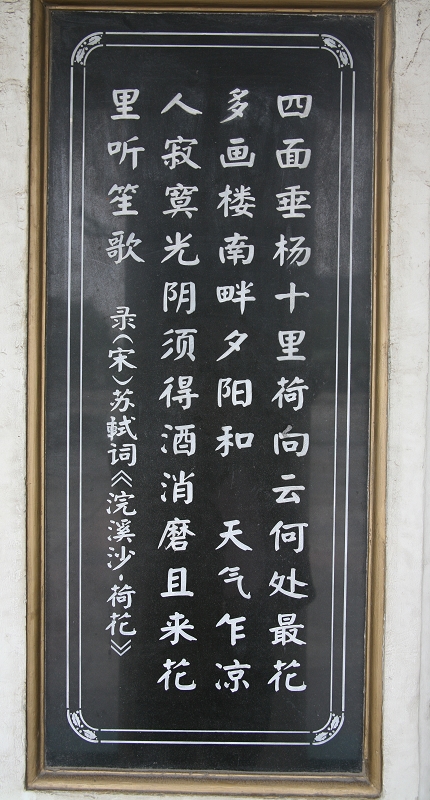 四面垂杨十里荷向云何处最花
多画楼南畔夕阳和 天气乍凉
人寂寞光阴须得酒消磨且来花
里听笙歌 录(宋)苏轼词《浣溪沙-荷花》